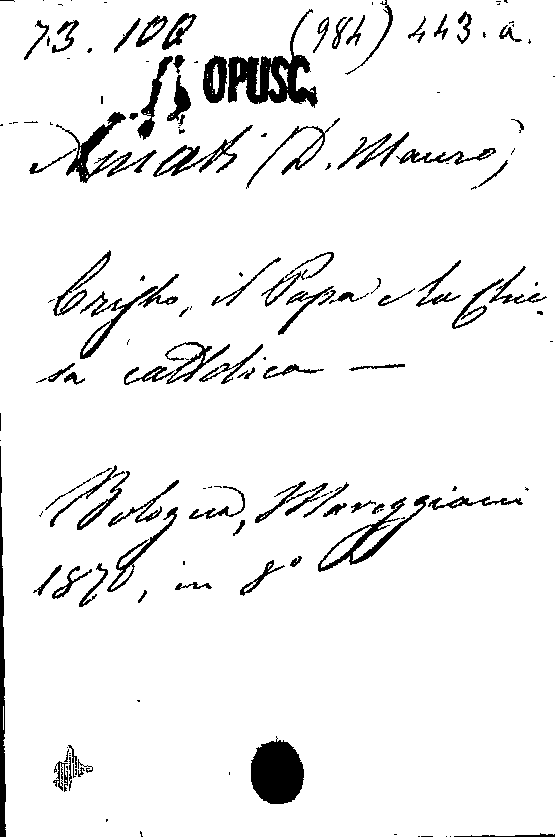 73. 10Q (984) 443. a.
OPUSC.
Amati (D. Mauro)
Cristo, il Papa e la Chie-
sa cattolica —
Bologna, Mareggiani
1870, in 8º